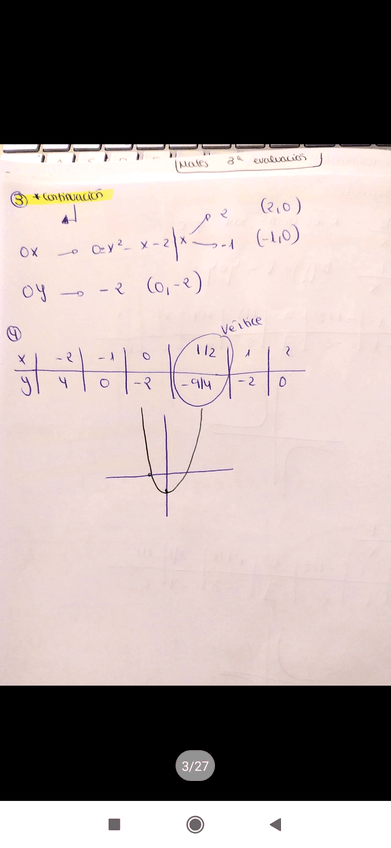 Mates 3ª evaluación
③ * Continuación
OX → 0=x² - x - 2 | x → 2 (2,0)
→ -1 (-1,0)
OY → -2 (0,-2)
④
Vértice
x | -2 | -1 | 0 | 1/2 | 1 | 2
y | 4 | 0 | -2 | -9/4 | -2 | 0
3/27